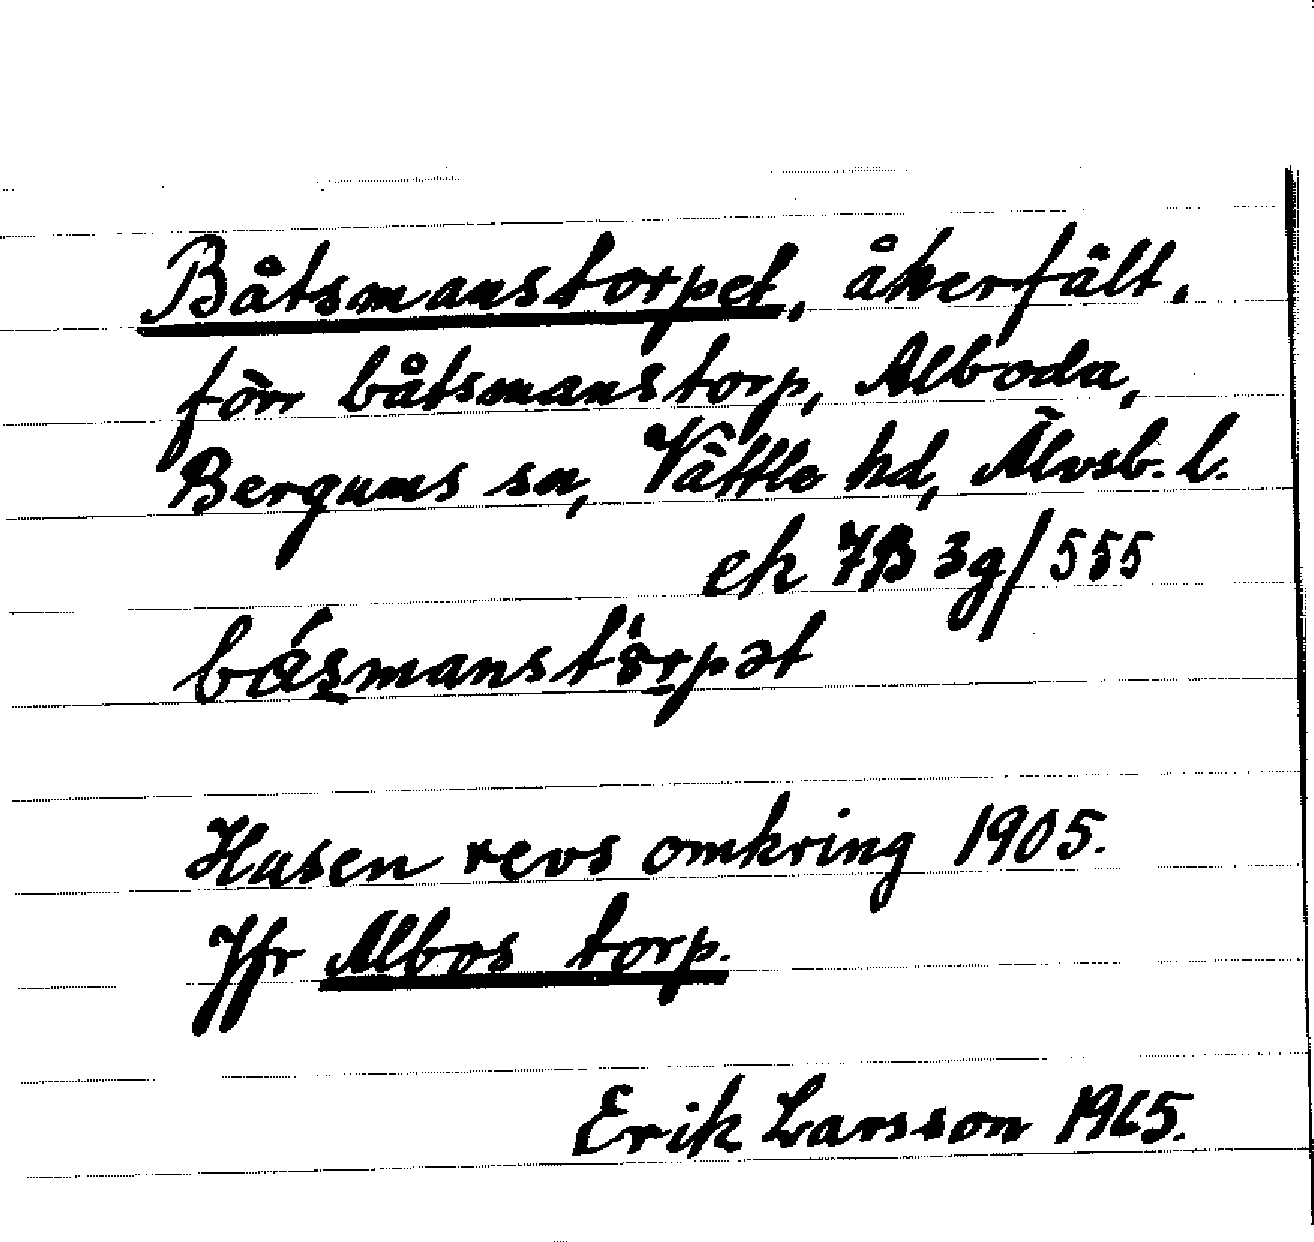 Båtsmanstorpet, åkerfält,
förr båtsmanstorp, Alboda,
Bergums sn, Vättle hd, Älvsb. l.
ek 7B 3g/555
Husen revs omkring 1905.
Jfr Albos torp.
Erik Larsson 1965.